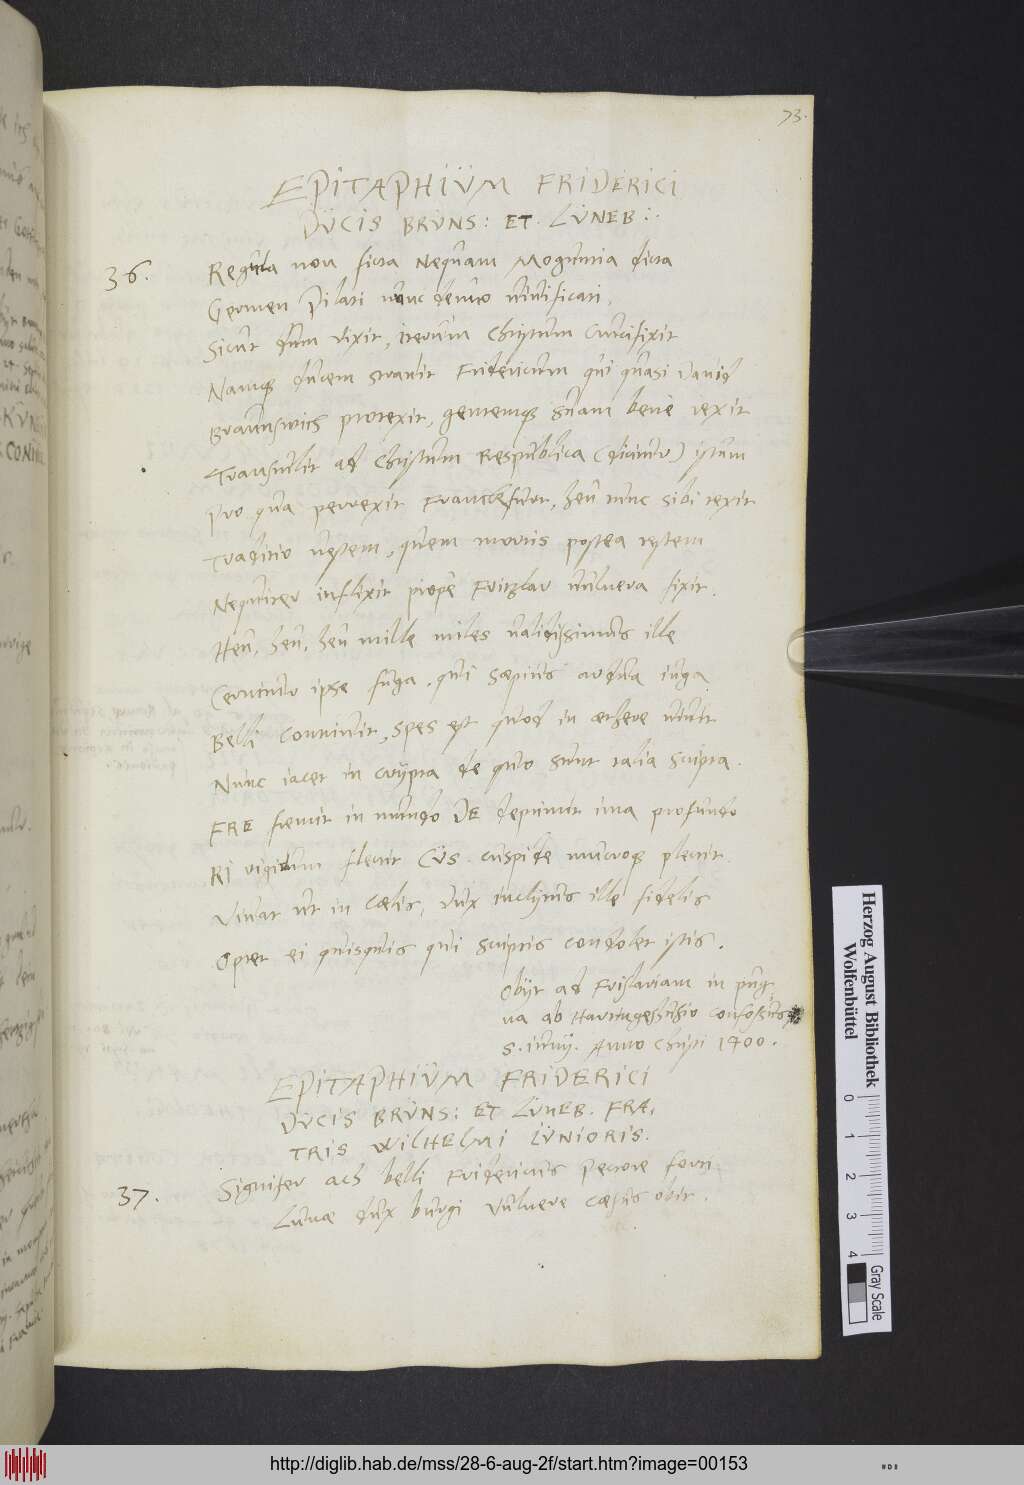 73.
EPITAPHIUM FRIDERICI
DUCIS BRUNS: ET. LUNEB:.
36. Regula non ficta Nequam Moguntia dicta
Germen Pilati nunc denuo vivificari,
Sicut dum vixit, iterum Christum Crucifixit
Namq ducem stravit Fridericum qui quasi David
Braunswich protexit, gentemq suam bene rexit
Transtulit ad Christum Respublica (dicitur) istum
Pro qua perrexit Franckfurt, heu nunc sibi texit
Traditio vestem, quem mortis postea testem
Nequiter inflixit prope Fritzlar vulnera fixit.
Heu, heu, heu mille miles validissimus ille
Cernitur ipse fuga, qui saepius ardua iuga
Belli convincit, spes est quod in aethere vivit
Nunc iacet in crÿpta de quo sunt talia scripta.
FRE fremit in mundo DE deprimit ima profundo
RI rigidum flectit CUS. cuspide mucroq plectit.
Vivat ut in Caelis, Dux inclÿtus ille fidelis
Optet ei quisquis qui scriptis condolet istis.
Obÿt ad Frislariam in pug,
na ab Hartingeshusio confossus
Anno Christi 1400.
EPITAPHIUM FRIDERICI
DUCIS BRUNS: ET LUNEB. FRA,
TRIS WILHELMI IUNIORIS.
37. Signifer ach belli Fridericus Pectore forti
Lunae dux burgi Vulnere caesus obit.
Herzog August Bibliothek
Wolfenbüttel
0 1 2 3 4
Gray Scale
http://diglib.hab.de/mss/28-6-aug-2f/start.htm?image=00153